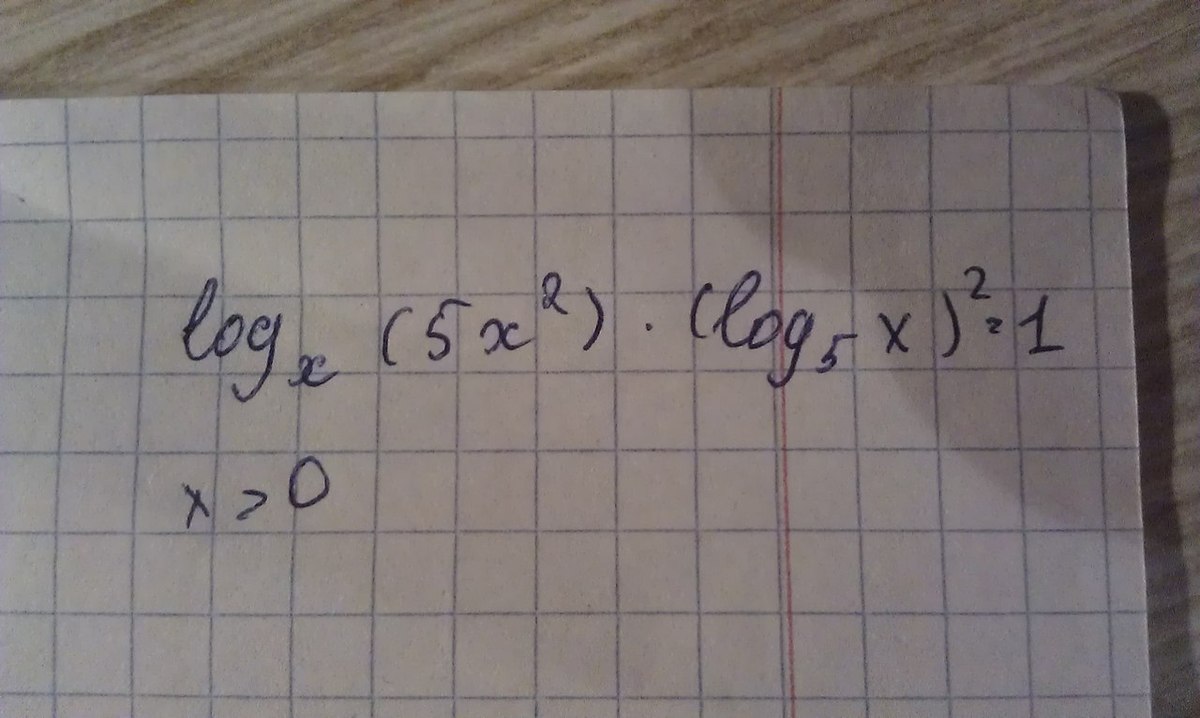 logₓ (5x²) · (log₅ x)² = 1
x > 0